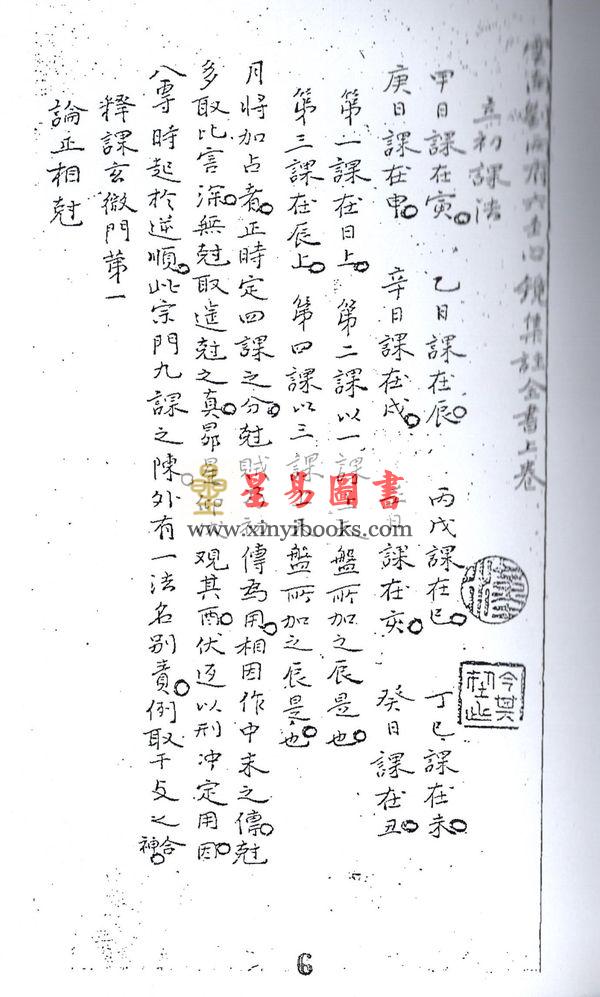 雲南劉 府六壬口鏡集註全書上卷
初課法
甲日課在寅。 乙日課在辰。 丙戊課在巳。 丁己課在未。
庚日課在申。 辛日課在戌。 日課在亥。 癸日課在丑。
第一課在日上。第二課以一課上盤所加之辰是也。
第三課在辰上。第四課以三課 盤所加之辰是也。
月將加占者。正時定四課之分。尅賊 傳為用。相因作中末之傳。尅
多取比言深。無尅取遥尅之真。昴星仰 观其酉。伏返以刑冲定用。因
八專時起於逆順。此宗門九課之陳。外有一法名别責。例取干支之合神。
釋課玄微門第一
論正相尅
今其
杜
星易圖書
www.xinyibooks.com
6